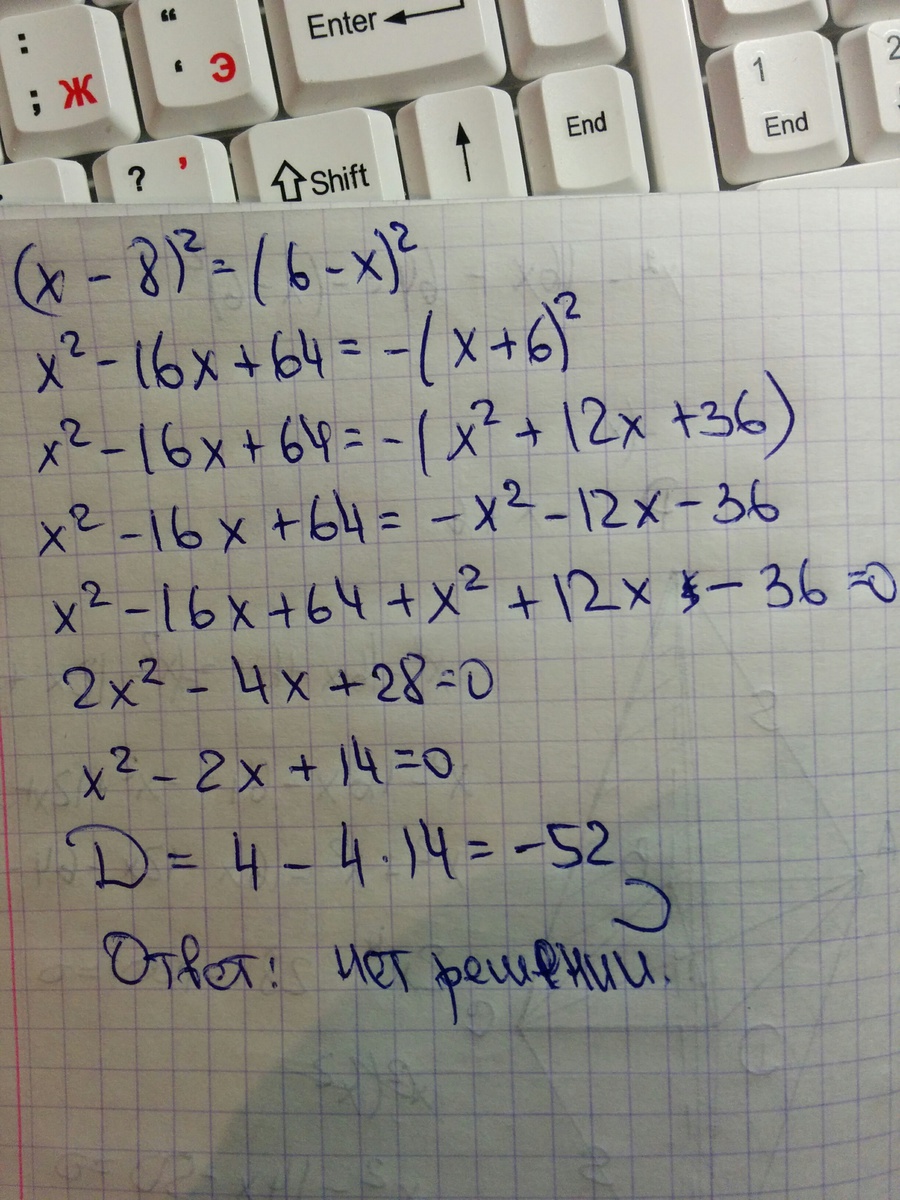 : " Enter
; Ж ' Э
1 2
End End
? , Shift
(x - 8)² = (6 - x)²
x² - 16x + 64 = -(x + 6)²
x² - 16x + 64 = -(x² + 12x + 36)
x² - 16x + 64 = -x² - 12x - 36
x² - 16x + 64 + x² + 12x - 36 = 0
2x² - 4x + 28 = 0
x² - 2x + 14 = 0
D = 4 - 4 · 14 = -52
Ответ: нет решений.